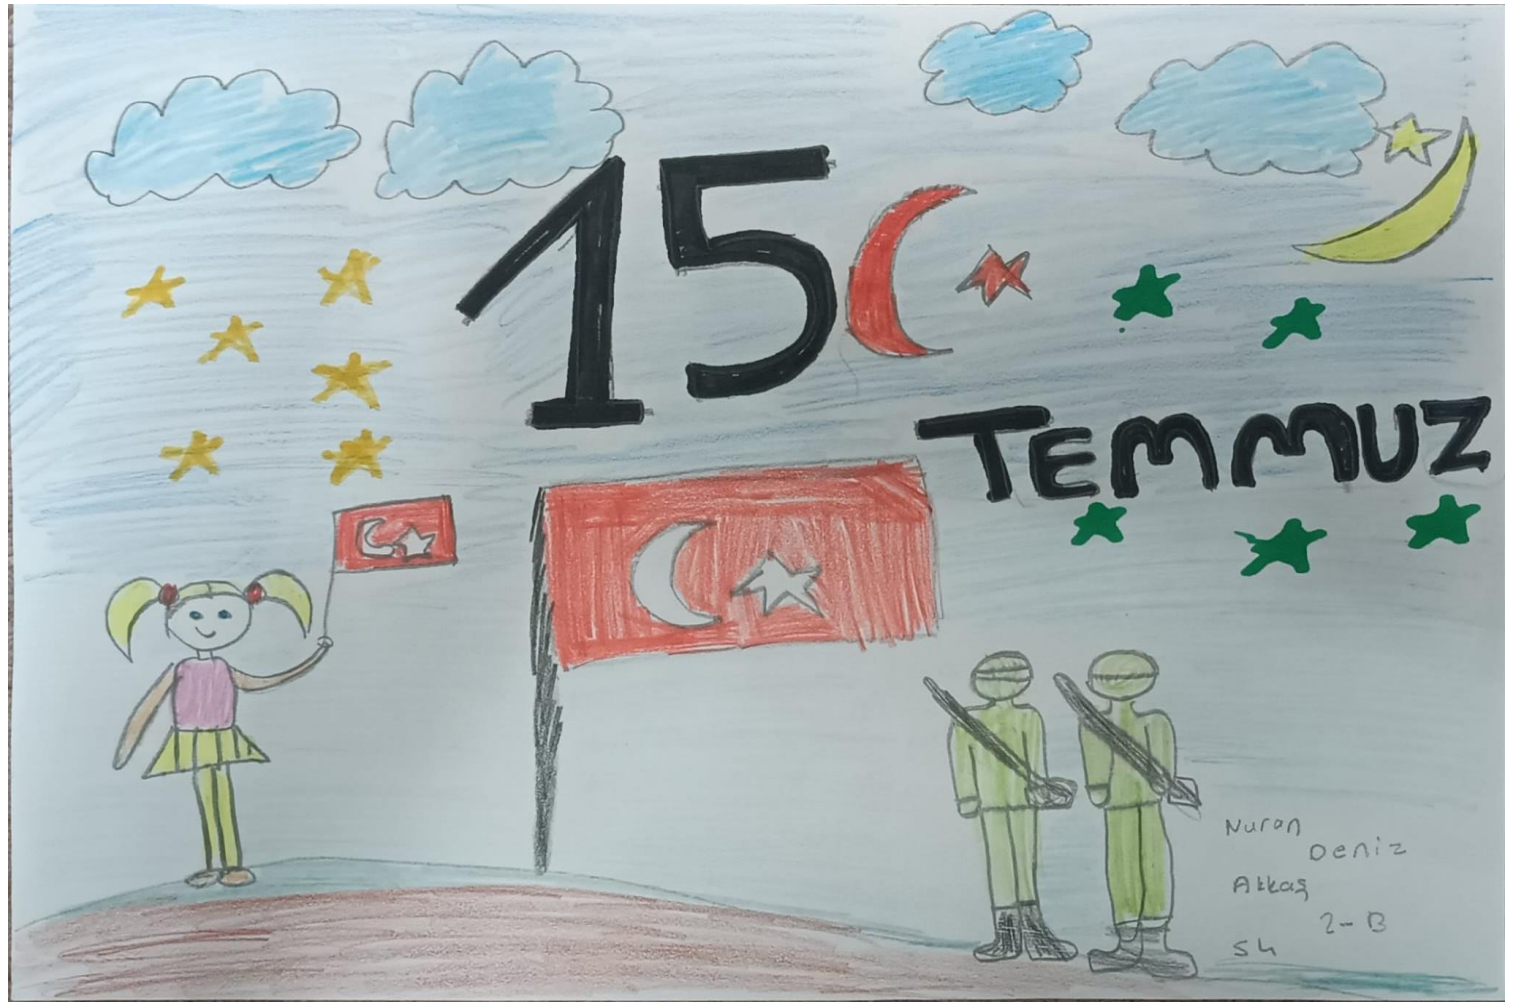 15
TEMMUZ
Nuran
Deniz
Akkaş
2-B
54